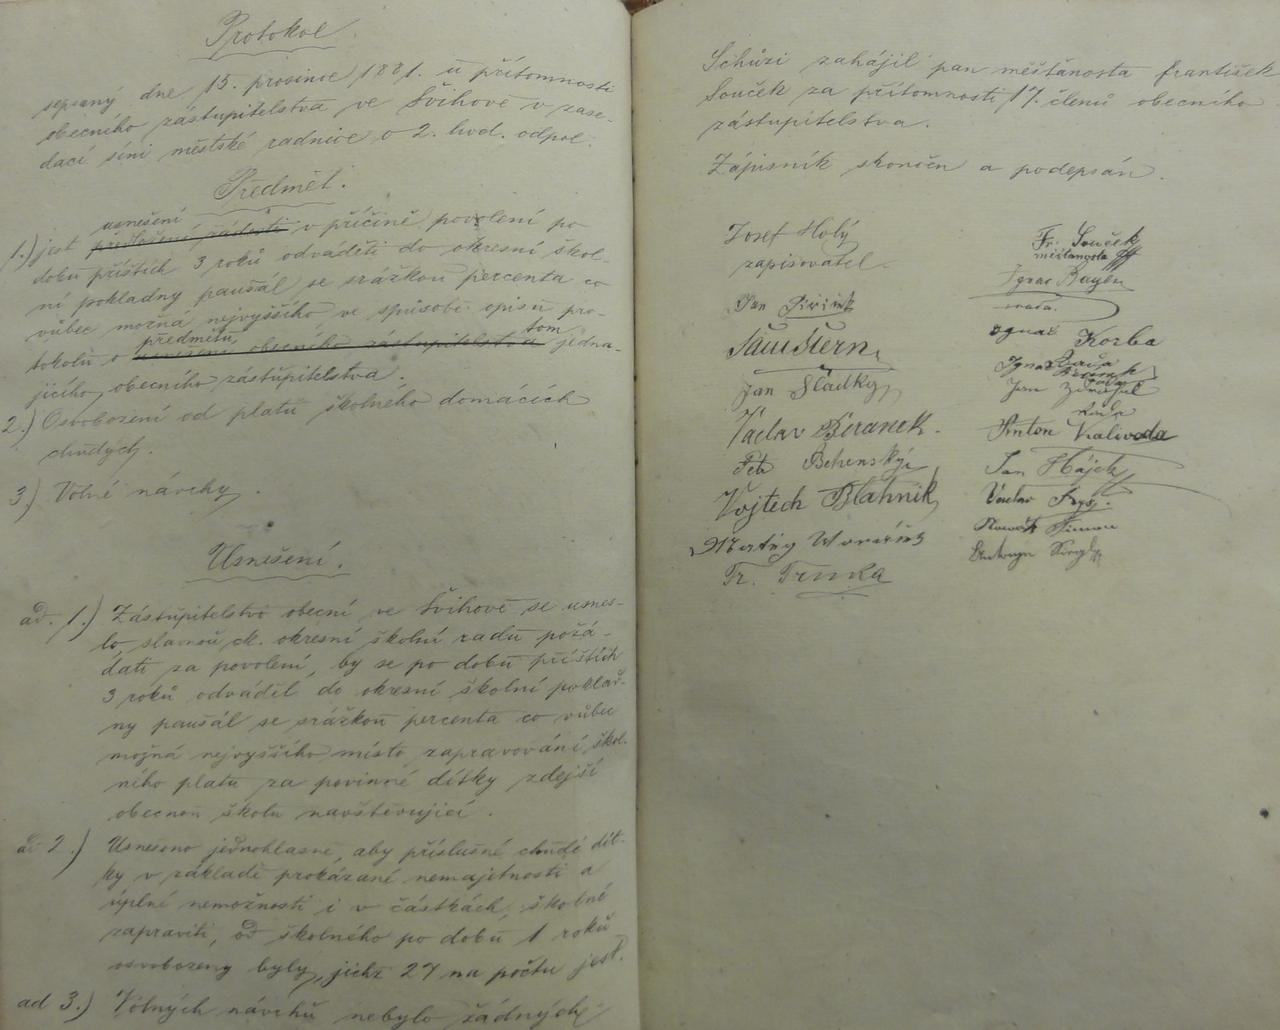 Protokol
sepsaný dne 15. prosince 1881. u přítomnosti
obecního zástupitelstva ve Švihově v zase-
dací síni městské radnice o 2. hod. odpol.
Předmět.
usnešení
1.) jest předložení žádosti v příčině povolení po
dobu příštích 3 roků odváděti do okresní škol-
ní pokladny paušál se srážkou percenta co
vůbec možná nejvyššího ve způsobě opisu pro-
předmětu tom
tokolu o usnešení obecního zástupitelstva jedna-
jícího obecního zástupitelstva.
2.) Osvobození od platu školného domácích
chudých.
3.) Volné návrhy.
Usnešení.
ad. 1.) Zástupitelstvo obecní ve Švihově se usnes-
lo slavnou ck. okresní školní radu požá-
dati za povolení, by se po dobu příštích
3 roků odváděl do okresní školní poklad-
ny paušál se srážkou percenta co vůbec
možná nejvyššího místo zapravování škol-
ního platu za povinné dítky zdejší
obecnou školu navštěvující.
ad 2.) Usneseno jednohlasně, aby příslušné chudé dít-
ky v základě prokázané nemajetnosti a
úplné nemožnosti i v částkách, školné
zapraviti, od školného po dobu 1 roků
osvobozeny byly, jichž 27 na počtu jest.
ad 3.) Volných návrhů nebylo žádných
Schůzi zahájil pan měšťanosta František
Souček za přítomnosti 17. členů obecního
zástupitelstva.
Zápisník skončen a podepsán.
Josef Holý
zapisovatel.
Jan
Sam Stern
Jan Sladký
Václav Beranek.
Petr Behenský
Vojtech Blahnik
Martin
Fr. Trnka
Fr. Souček
měšťanosta
Ignac Bayer
rada.
Ignac Korba
Ignac
Jan
rada
Anton Kalivoda
Jan Hájek
Václav
Nowák Simon